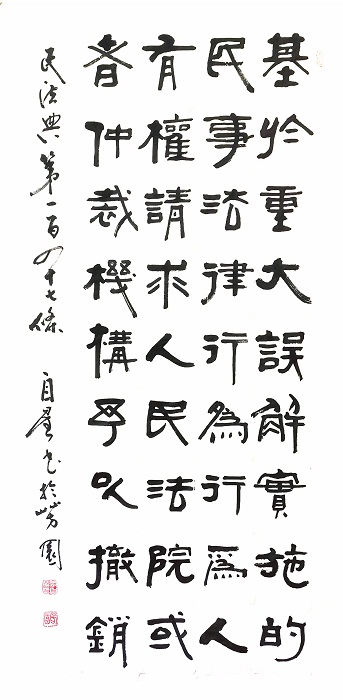 基於重大誤解實施的
民事法律行為行為人
有權請求人民法院或
者仲裁機構予以撤銷
民法典第一百四十七條 自書於園